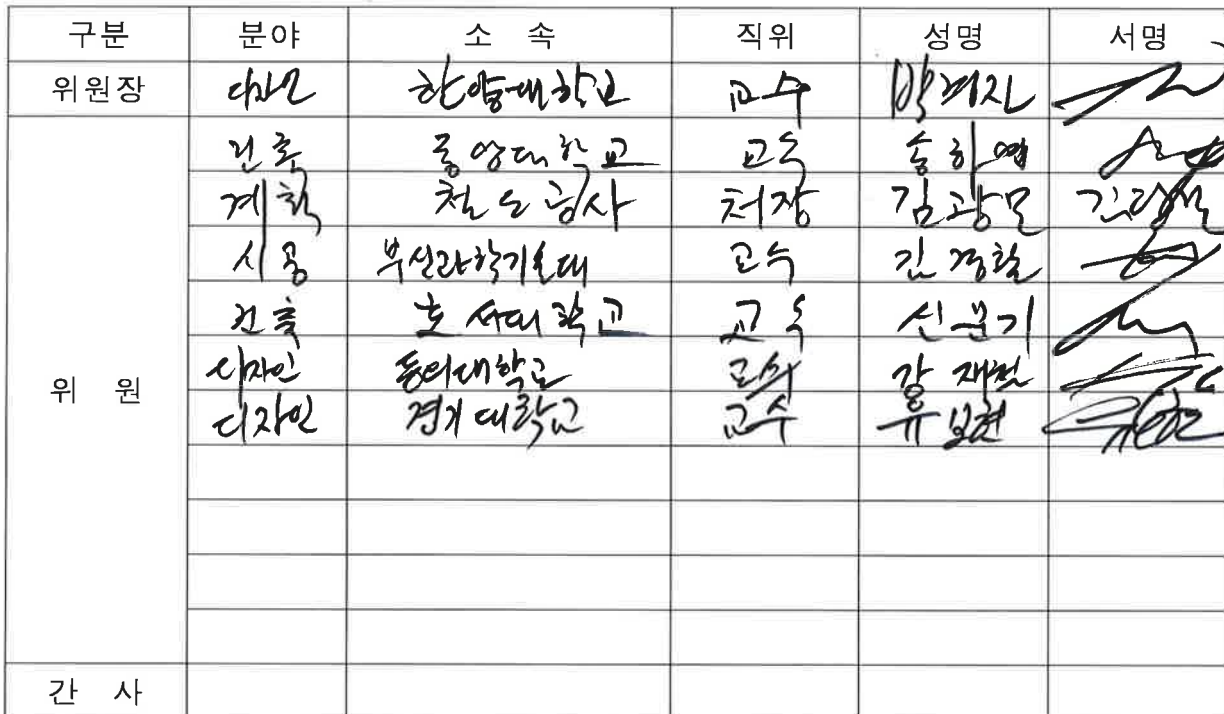 구분 분야 소 속 직위 성명 서명
위원장 디자인 한양대학교 교수 박
건축 중앙대학교 교수 송하엽
계획 철도공사 처장 김광모 김광모
시공 부산과학기술대 교수 김경환
건축 호서대학교 교수 신문기
위 원
디자인 동의대학교 교수 강재철
디자인 경기대학교 교수 유보현
간 사